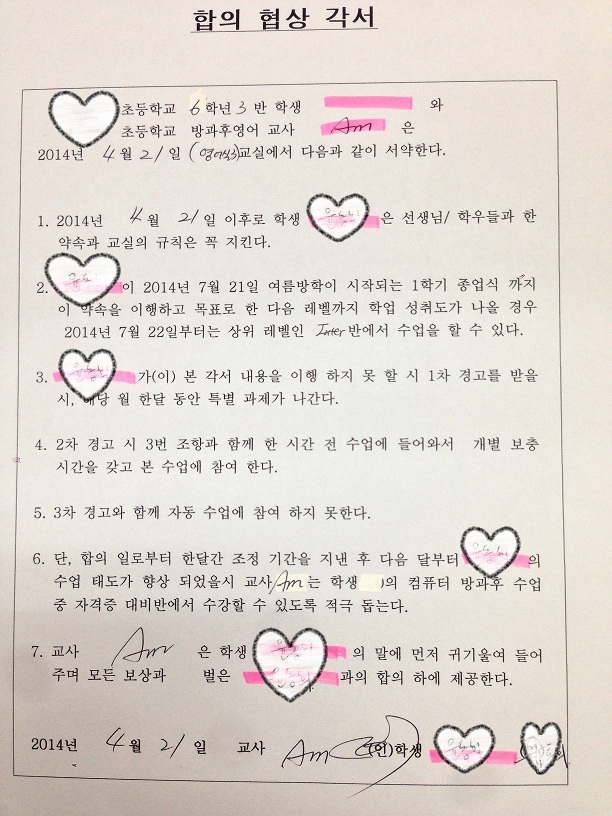 합의 협상 각서
초등학교 6학년 3 반 학생 와
초등학교 방과후영어 교사 Am 은
2014년 4월 21일 (영어실)교실에서 다음과 같이 서약한다.
1. 2014년 4월 21일 이후로 학생 은 선생님/ 학우들과 한
약속과 교실의 규칙은 꼭 지킨다.
2. 이 2014년 7월 21일 여름방학이 시작되는 1학기 종업식 까지
이 약속을 이행하고 목표로 한 다음 레벨까지 학업 성취도가 나올 경우
2014년 7월 22일부터는 상위 레벨인 Inter반에서 수업을 할 수 있다.
3. 가(이) 본 각서 내용을 이행 하지 못 할 시 1차 경고를 받을
시, 해당 월 한달 동안 특별 과제가 나간다.
4. 2차 경고 시 3번 조항과 함께 한 시간 전 수업에 들어와서 개별 보충
시간을 갖고 본 수업에 참여 한다.
5. 3차 경고와 함께 자동 수업에 참여 하지 못한다.
6. 단, 합의 일로부터 한달간 조정 기간을 지낸 후 다음 달부터 의
수업 태도가 향상 되었을시 교사 Am 는 학생 의 컴퓨터 방과후 수업
중 자격증 대비반에서 수강할 수 있도록 적극 돕는다.
7. 교사 Am 은 학생 의 말에 먼저 귀기울여 들어
주며 모든 보상과 벌은 과의 합의 하에 제공한다.
2014년 4월 21일 교사 Am (인)학생